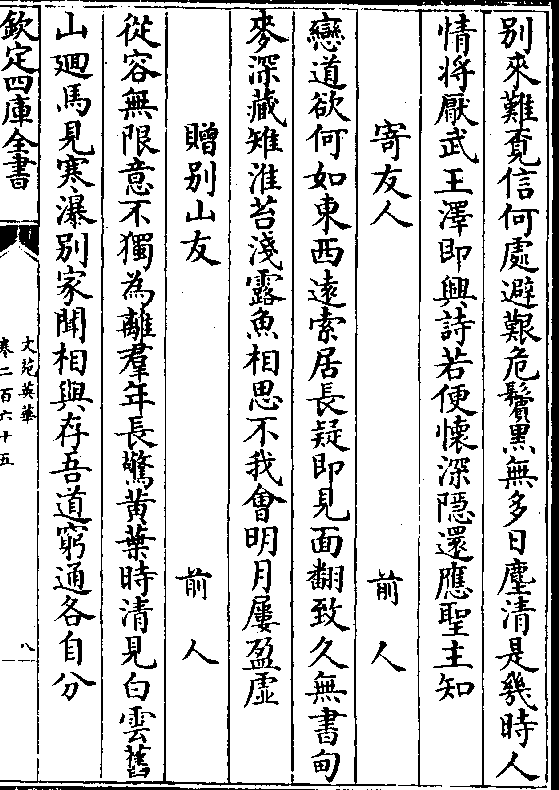 别來難覔信何處避艱危鬢黒無多日塵清是幾時人
情将厭武王澤即興詩若便懐深隠還應聖主知
寄友人　前人
戀道欲何如東西逺索居長疑即見面翻致久無書甸
麥深藏雉淮苔淺露魚相思不我會明月屢盈虛
贈别山友　前人
從容無限意不獨為離羣年長驚黄葉時清見白雲舊
山廻馬見寒瀑别家聞相與存吾道窮通各自分
欽定四庫全書
文苑英華
卷二百六十五
八